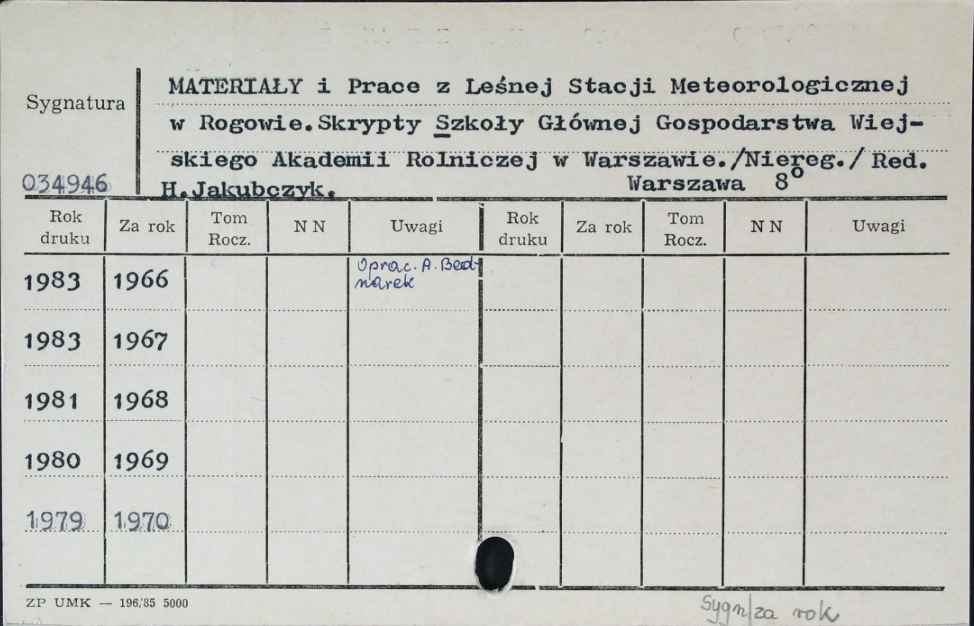 MATERIAŁY i Prace z Leśnej Stacji Meteorologicznej
Sygnatura
w Rogowie.Skrypty Szkoły Głównej Gospodarstwa Wiej-
skiego Akademii Rolniczej w Warszawie./Niereg./ Red.
034946 H.Jakubczyk. Warszawa 8°
Rok druku Za rok Tom Rocz. N N Uwagi Rok druku Za rok Tom Rocz. N N Uwagi
1983 1966 Oprac. A. Bed-
narek
1983 1967
1981 1968
1980 1969
1979 1970
ZP UMK — 196/85 5000
Sygn/za rok